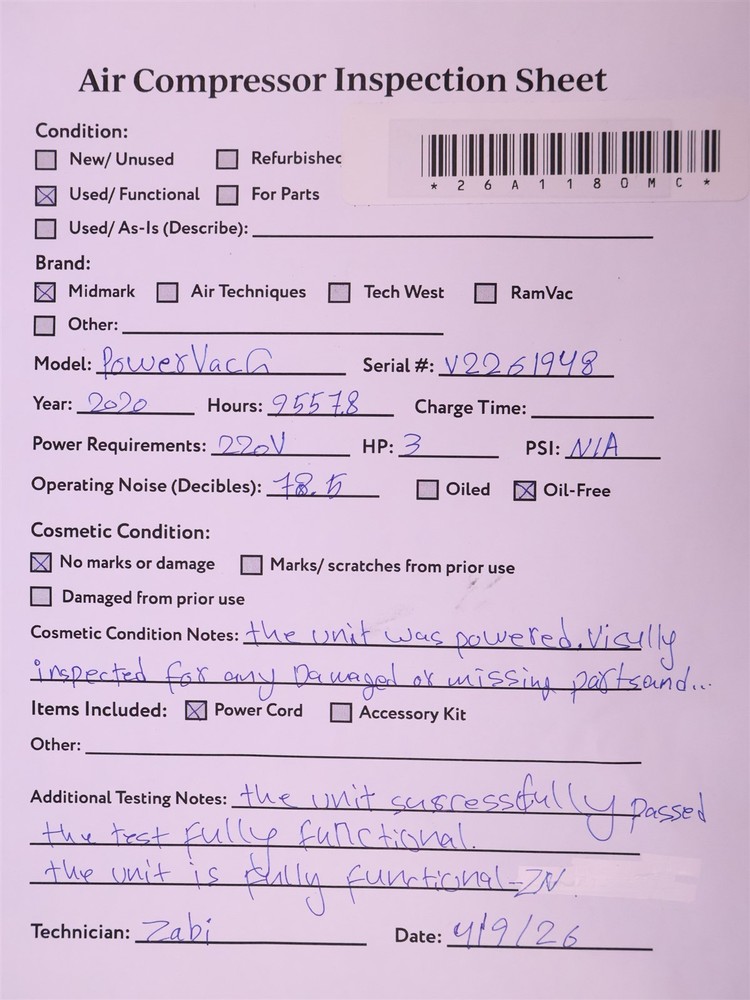 Air Compressor Inspection Sheet
Condition:
New/ Unused Refurbished
*26A1180MC*
Used/ Functional For Parts
Used/ As-Is (Describe):
Brand:
Midmark Air Techniques Tech West RamVac
Other:
Model: PowerVac G Serial #: V2261948
Year: 2020 Hours: 9557.8 Charge Time:
Power Requirements: 220V HP: 3 PSI: N/A
Operating Noise (Decibles): 78.5 Oiled Oil-Free
Cosmetic Condition:
No marks or damage Marks/ scratches from prior use
Damaged from prior use
Cosmetic Condition Notes: the unit was powered. Visully
inspected for any Damaged or missing parts and...
Items Included: Power Cord Accessory Kit
Other:
Additional Testing Notes: the unit susressfully passed
the test fully functional.
the unit is fully functional-ZN
Technician: Zabi Date: 4/9/26